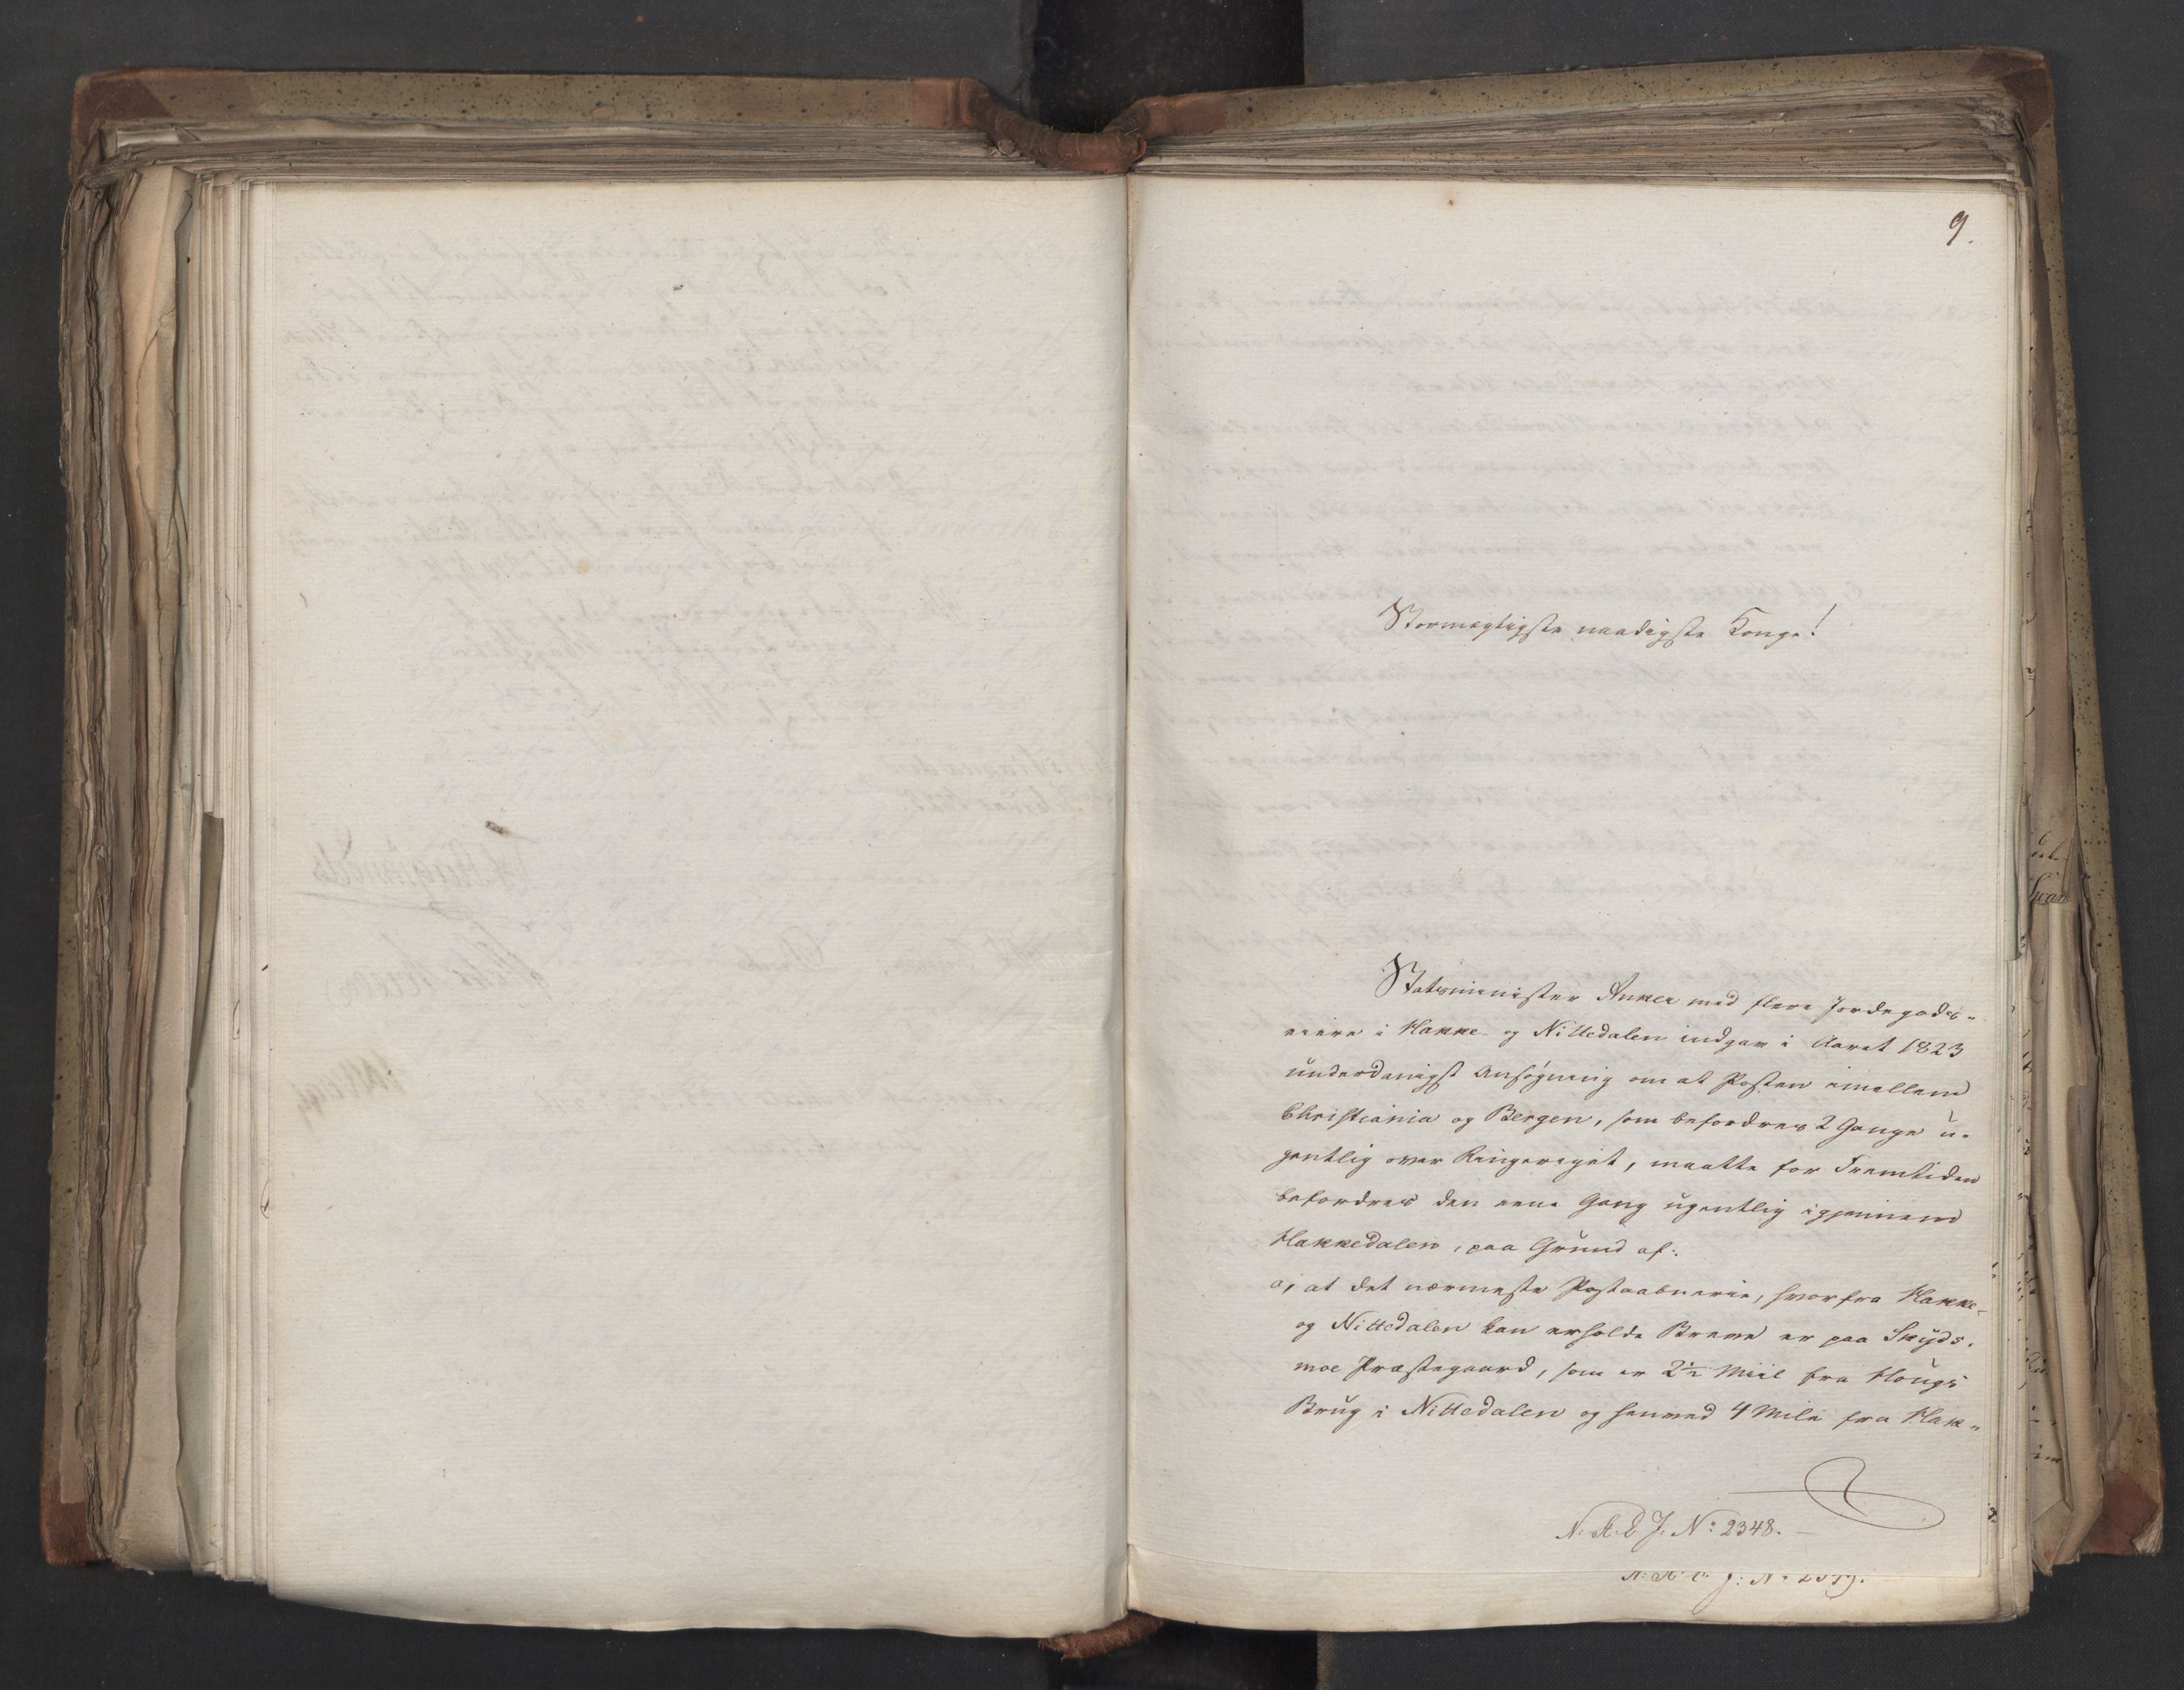 9.
Stormægtigste naadigste Konge!
Statsminister Anker med flere Jordegods-
eiere i Hakke- og Nittedalen indgav i Aaret 1823
underdanigst Ansøgning om at Posten imellem
Christiania og Bergen, som befordres 2 Gange u-
gentlig over Ringeriget, maatte for Fremtiden
befordres den eene Gang ugentlig igjennem
Hakkedalen, paa Grund af:
a, at det nærmeste Postaabnerie, hvorfra Hakke-
og Nittedalen kan erholde Breve er paa Skyds-
moe Præstegaard, som er 2½ Miil fra Hougs
Brug i Nittedalen og henved 4 Mile fra Hak-
N: R: E. J: No 2348.